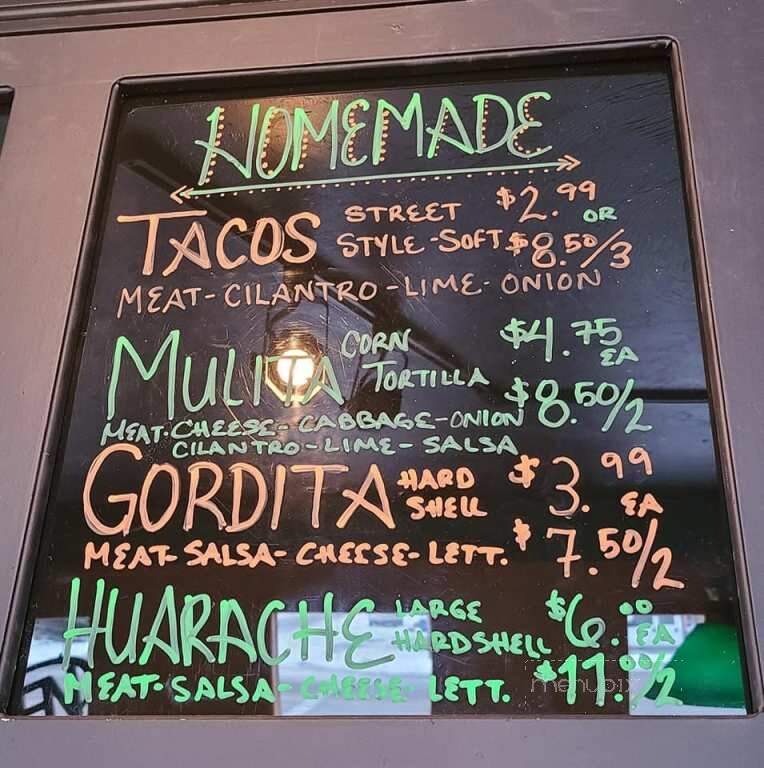 HOMEMADE
TACOS STREET STYLE-SOFT $2.99 OR $8.50/3
MEAT-CILANTRO-LIME-ONION
MULITA CORN TORTILLA $4.75 EA $8.50/2
MEAT-CHEESE-CABBAGE-ONION
CILANTRO-LIME-SALSA
GORDITA HARD SHELL $3.99 EA
MEAT-SALSA-CHEESE-LETT. $7.50/2
HUARACHE LARGE HARDSHELL $6.00 EA
MEAT-SALSA-CHEESE-LETT. $11.00/2
menupix